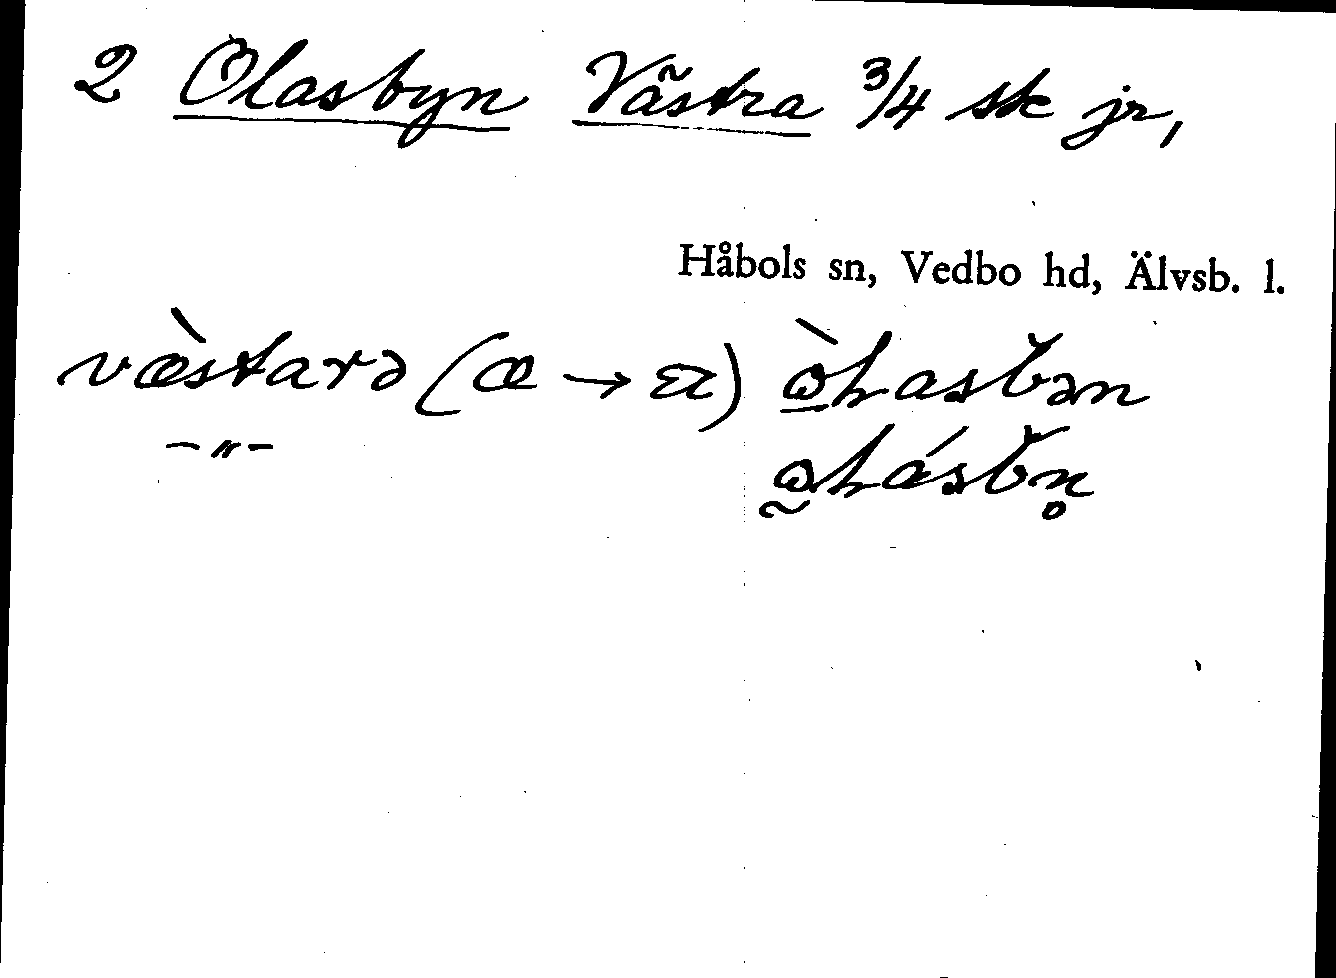 2 Olasbyn Västra 3/4 sk jr,
Håbols sn, Vedbo hd, Älvsb. l.
væ̀starə (æ → a)
—〃—